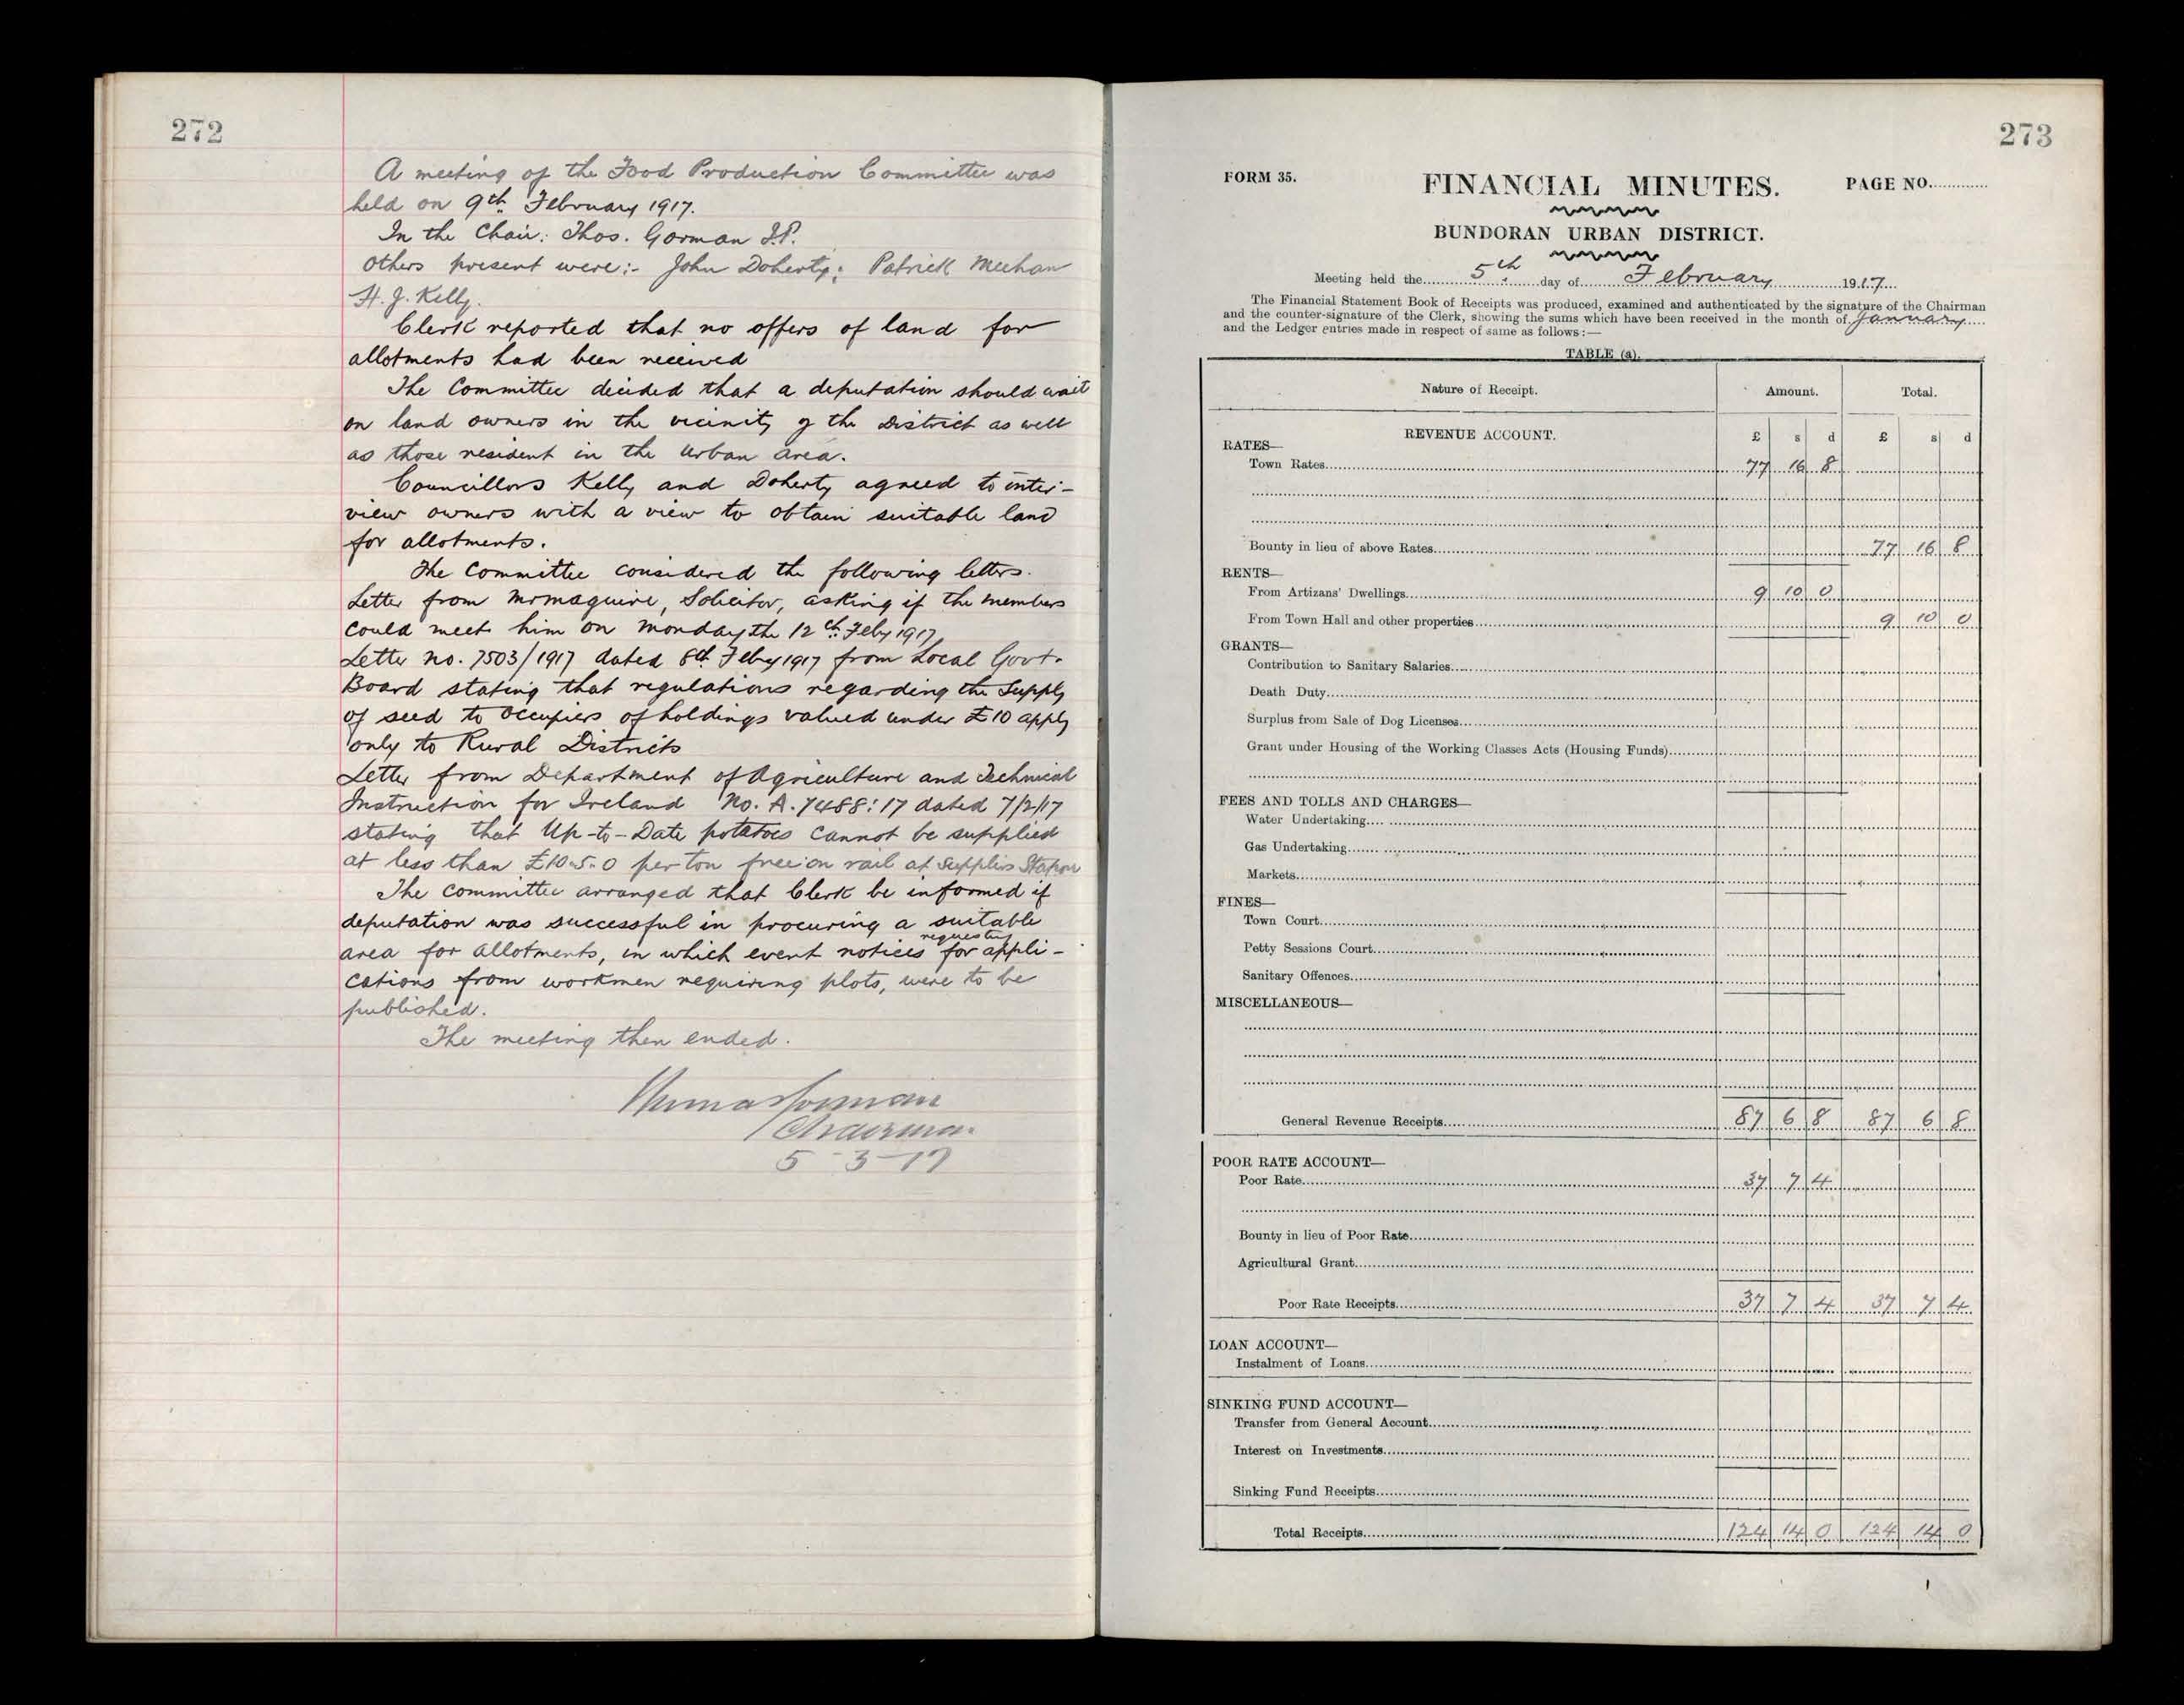 272
A meeting of the Food Production Committee was
held on 9th February 1917.
In the Chair: Thos. Gorman J.P.
Others present were:- John Doherty; Patrick Meehan
H. J. Kelly.
Clerk reported that no offers of land for
allotments had been received
The Committee decided that a deputation should wait
on land owners in the vicinity of the District as well
as those resident in the Urban area.
Councillors Kelly and Doherty agreed to inter-
view owners with a view to obtain suitable land
for allotments.
The Committee considered the following letters.
Letter from Mr Maguire, Solicitor, asking if the members
could meet him on Monday the 12th Feby 1917,
Letter no. 7503/1917 dated 8th Feby 1917 from Local Govt.
Board stating that regulations regarding the supply
of seed to occupiers of holdings valued under £10 apply
only to Rural Districts
Letter from Department of Agriculture and Technical
Instruction for Ireland No. A.7488:17 dated 7/2/17
stating that Up-to-Date potatoes cannot be supplied
at less than £10-5-0 per ton free on rail at Suppliers Station
The committee arranged that Clerk be informed if
deputation was successful in procuring a suitable
area for allotments, in which event notices requesting for appli-
cations from workmen requiring plots, were to be
published.
The meeting then ended.
Thomas Gorman
Chairman
5-3-17
273
FORM 35.
FINANCIAL MINUTES.
PAGE NO............
BUNDORAN URBAN DISTRICT.
Meeting held the 5th day of February 1917
The Financial Statement Book of Receipts was produced, examined and authenticated by the signature of the Chairman
and the counter-signature of the Clerk, showing the sums which have been received in the month of January
and the Ledger entries made in respect of same as follows:—
TABLE (a).
Nature of Receipt. Amount. Total.
REVENUE ACCOUNT. £ s d £ s d
RATES—
Town Rates 77 16 8
Bounty in lieu of above Rates 77 16 8
RENTS—
From Artizans' Dwellings 9 10 0
From Town Hall and other properties 9 10 0
GRANTS—
Contribution to Sanitary Salaries
Death Duty
Surplus from Sale of Dog Licenses
Grant under Housing of the Working Classes Acts (Housing Funds)
FEES AND TOLLS AND CHARGES—
Water Undertaking
Gas Undertaking
Markets
FINES—
Town Court
Petty Sessions Court
Sanitary Offences
MISCELLANEOUS—
General Revenue Receipts 87 6 8 87 6 8
POOR RATE ACCOUNT—
Poor Rate 37 7 4
Bounty in lieu of Poor Rate
Agricultural Grant
Poor Rate Receipts 37 7 4 37 7 4
LOAN ACCOUNT—
Instalment of Loans
SINKING FUND ACCOUNT—
Transfer from General Account
Interest on Investments
Sinking Fund Receipts
Total Receipts 124 14 0 124 14 0